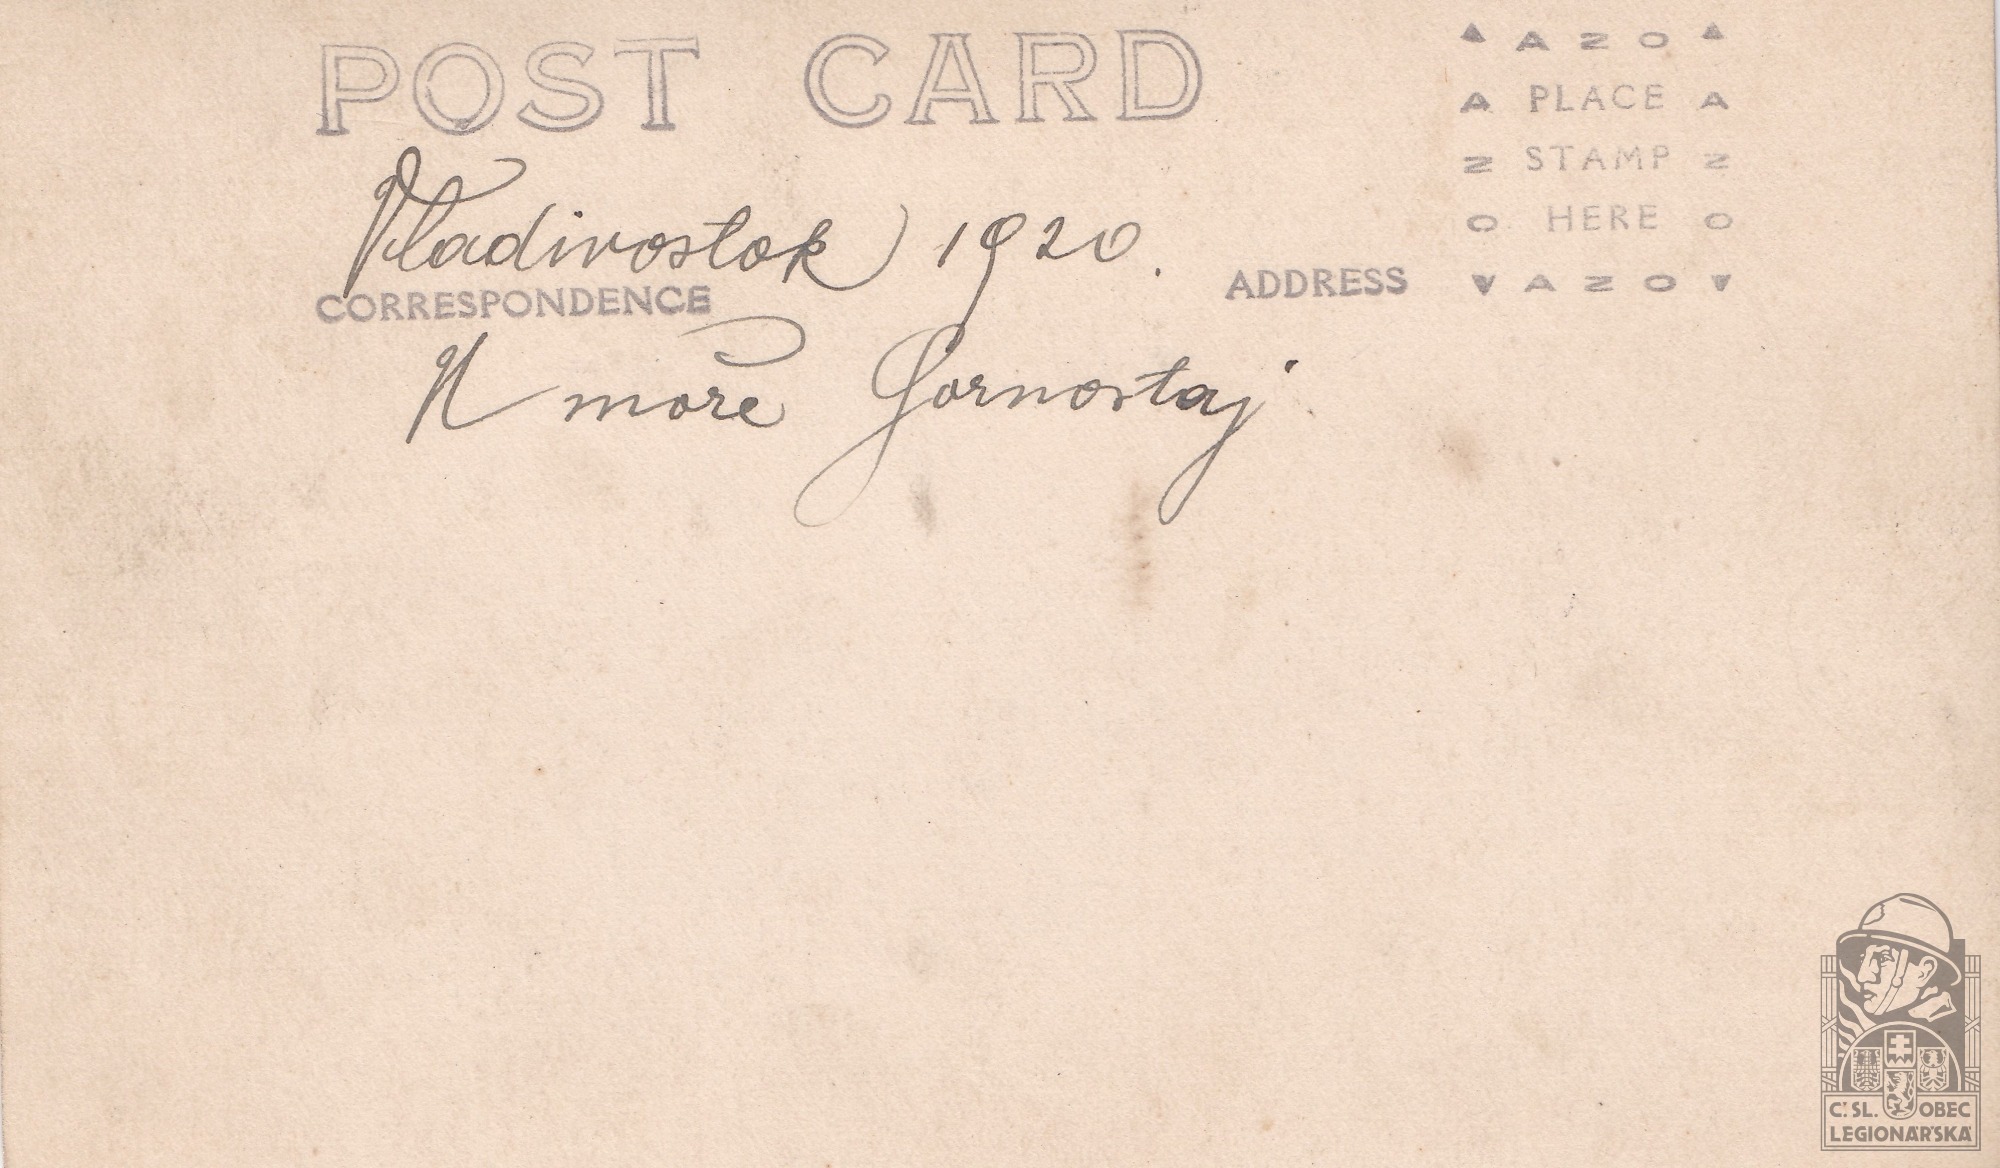 POST CARD
▲ A Z O ▲
A PLACE A
Z STAMP Z
O HERE O
▼ A Z O ▼
Vladivostok 1920.
CORRESPONDENCE
ADDRESS
U moře Gornostaj
Č.SL. OBEC
LEGIONÁŘSKÁ